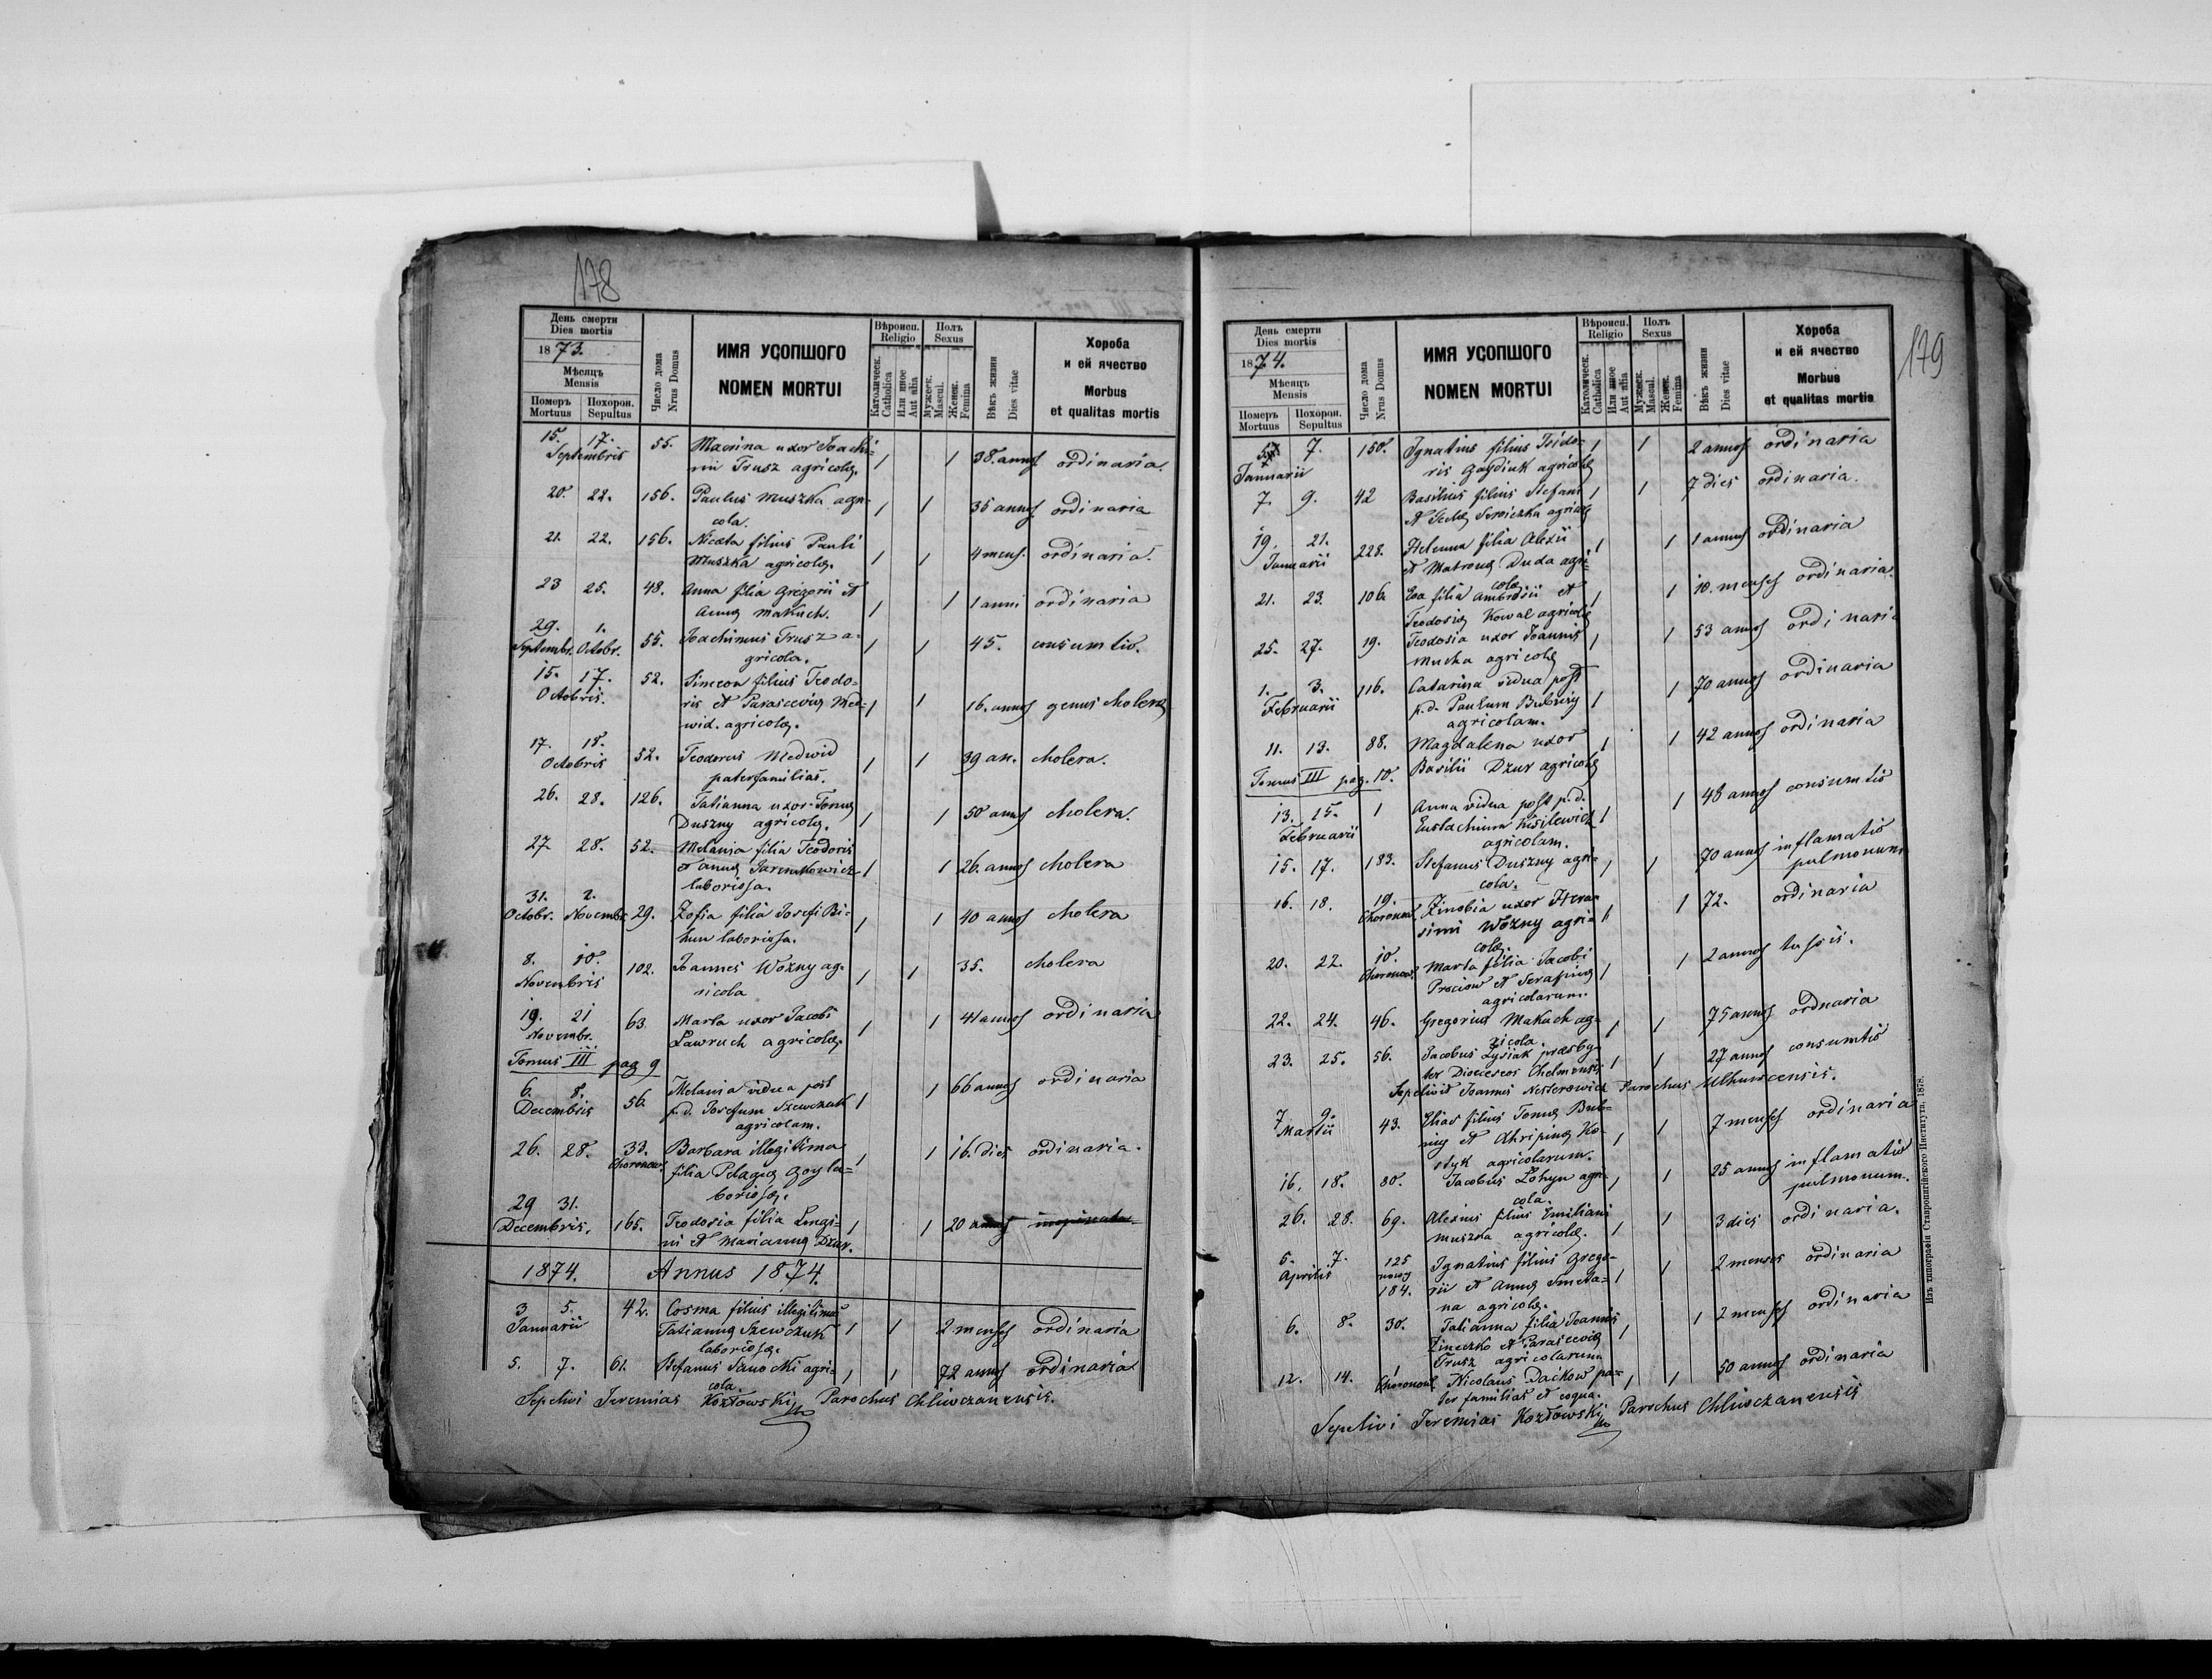 178
День смерти
Dies mortis
1873.
Мѣсяцъ
Mensis
Померъ
Mortuus
Похорон.
Sepultus
Число дома
Nrus Domus
ИМЯ УСОПШОГО
NOMEN MORTUI
Вѣроисп.
Religio
Католическ.
Catholica
Или иное
Aut alia
Полъ
Sexus
Мужеск.
Mascul.
Женск.
Femina
Вѣкъ жизни
Dies vitae
Хороба
и ей ячество
Morbus
et qualitas mortis
15. 17. 55. Macrina uxor Joachi-
Septembris nii Trusz agricolę 1 1 38. annos ordinaria.
20. 22. 156. Paulus Muszka agri-
cola. 1 1 35 annos ordinaria
21. 22. 156. Niceta filius Pauli
Muszka agricolę. 1 1 4 mens. ordinaria.
23 25. 48. Anna filia Gregorii et
Annę Makuch. 1 1 1 anni ordinaria
29. 1. 55. Joachimus Trusz a-
Septembr. Octobr. gricola. 1 1 45. consumtio.
15. 17. 52. Simeon filius Teodo-
Octobris. ris et Parascevię Med-
wid. agricolę. 1 1 16. annos genus cholerę
17. 18. 52. Teodorus Medwid
Octobris paterfamilias. 1 1 39 an. cholera.
26. 28. 126. Tatianna uxor Tomę
Duszny agricolę. 1 1 50 annos cholera.
27 28. 52. Melania filia Teodoris
et Annę Jaremkowicz
laboriosa. 1 1 26. annos cholera
31. 2. 29. Zofia filia Josefi Bi-
Octobr. Novembr. hun laboriosa. 1 1 40 annos cholera
8. 10. 102. Joannes Wozny ag-
Novembris ricola 1 1 35. cholera
19. 21 63. Marta uxor Jacobi
Novembr. Ławruch agricolę. 1 1 41 annos ordinaria
Tomus III pag 9
6. 8. 56. Melania vidua post
Decembris p.d. Josefum Szewczuk
agricolam. 1 1 66 annos ordinaria
26. 28. 33. Barbara illegitima
Choronow. filia Pelagię Goy la-
boriosę. 1 1 16. dies ordinaria.
29 31. 165. Teodosia filia Longi-
Decembris. ni et Mariannę Dzur. 1 1 20 annos
1874. Annus 1874.
3 5. 42. Cosma filius illegitimus
Januarii Tatiannę Szewczuk
laboriosę. 1 1 2 menses ordinaria
5. 7. 61. Stefanus Sanocki agri-
cola. 1 1 72 annos ordinaria
Sepelivi Jeremias Kozłowski Parochus Chliwczanensis.
179
День смерти
Dies mortis
1874.
Мѣсяцъ
Mensis
Померъ
Mortuus
Похорон.
Sepultus
Число дома
Nrus Domus
ИМЯ УСОПШОГО
NOMEN MORTUI
Вѣроисп.
Religio
Католическ.
Catholica
Или иное
Aut alia
Полъ
Sexus
Мужеск.
Mascul.
Женск.
Femina
Вѣкъ жизни
Dies vitae
Хороба
и ей ячество
Morbus
et qualitas mortis
7. 150. Ignatius filius Isido-
Januarii ris Gaydiuk agricolę 1 1 2 annos ordinaria
7. 9. 42 Basilius filius Stefani
et agricolę 1 1 7 dies ordinaria.
19. 21. 228. Helenna filia Alexii
Januarii et Matronę Duda agri-
colę. 1 1 1 annus ordinaria
21. 23. 106. Eva filia Ambrosii et
Teodosię Kowal agricolę 1 1 10. menses ordinaria.
25. 27. 19. Teodosia uxor Joannis
Mucha agricolę 1 1 53 annos ordinaria
1. 3. 116. Catarina vidua post
Februarii p.d. Paulum Bubniy
agricolam. 1 1 70 annos ordinaria
11. 13. 88. Magdalena uxor
Basilii Dzur agricolę 1 1 42 annos ordinaria
Tomus III pag. 10.
13. 15. 1 Anna vidua post p.d.
Februarii Eustachium Kisilewicz
agricolam. 1 1 48 annos consumtio
15. 17. 183. Stefanus Duszny agri-
cola. 1 1 70 annos inflamatio
pulmonum
16. 18. 19. Zinobia uxor Hera-
Choronow. simi Wozny agri-
colę. 1 1 72. ordinaria
20. 22. 10. Marta filia Jacobi
Choronow. Prociow et Serafinę
agricolarum. 1 1 2 annos tussis.
22. 24. 46. Gregorius Makuch ag-
ricola. 1 1 75 annos ordnaria
23. 25. 56. Jacobus Łysiak presby-
ter Dioeceseos Chelmensis 1 1 27 annos consumtio
Sepelivit Joannes Nesterowicz Parochus Ulhuwcensis.
7 9. 43. Elias filius Tomę Bub-
Martii niy et Ahripinę Ko-
styk agricolarum. 1 1 7 menses ordinaria
16. 18. 80. Jacobus Łohyn agri-
cola. 1 1 25 annos inflamatio
pulmonum.
26. 28. 69. Alexius filius Emiliani
Muszka agricolę. 1 1 3 dies ordinaria.
5. 7. 125 Ignatius filius Grego-
Aprilis nowy rii et Annę Smeta-
184. na agricolę. 1 1 2 menses ordinaria
6. 8. 30. Tatianna filia Joannis
Zineczko et Parascevię
Trusz agricolarum 1 1 2 menses ordinaria
12. 14. 1 Nicolaus Dackow pa-
Choronow. ter familias et coqua. 1 1 50 annos ordinaria
Sepelivi Jeremias Kozłowski Parochus Chliwczanensis
Изъ типографіи Ставропигійского Института, 1878.